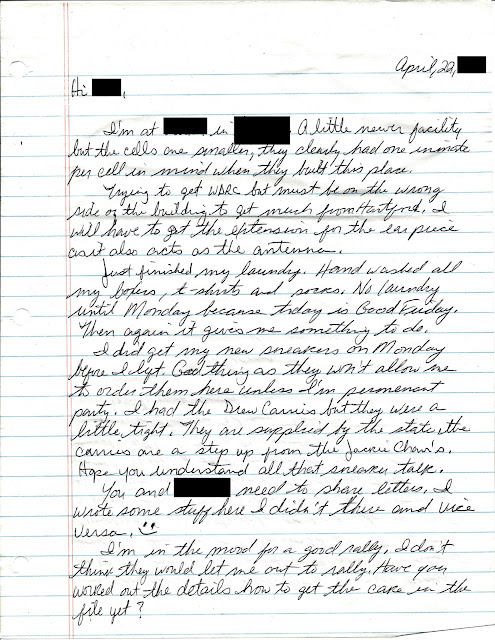 April, 22,
Hi ,
I'm at in . A little newer facility
but the cells are smaller, they clearly had one inmate
per cell in mind when they built this place.
Trying to get WDRC but must be on the wrong
side of the building to get much from Hartford. I
will have to get the extension for the ear piece
as it also acts as the antenna.
Just finished my laundry. Hand washed all
my boxers, t-shirts and socks. No laundry
until Monday because today is Good Friday.
Then again it gives me something to do.
I did get my new sneakers on Monday
before I left. Good thing as they won't allow me
to order them here unless I'm permenent
party. I had the Drew Carries but they were a
little tight. They are supplied by the state, the
carries are a step up from the Jackie Chan's.
Hope you understand all that sneaker talk.
You and need to share letters. I
wrote some stuff here I didn't there and vice
versa.
I'm in the mood for a good rally. I don't
think they would let me out to rally. Have you
worked out the details how to get the cake in the
file yet?